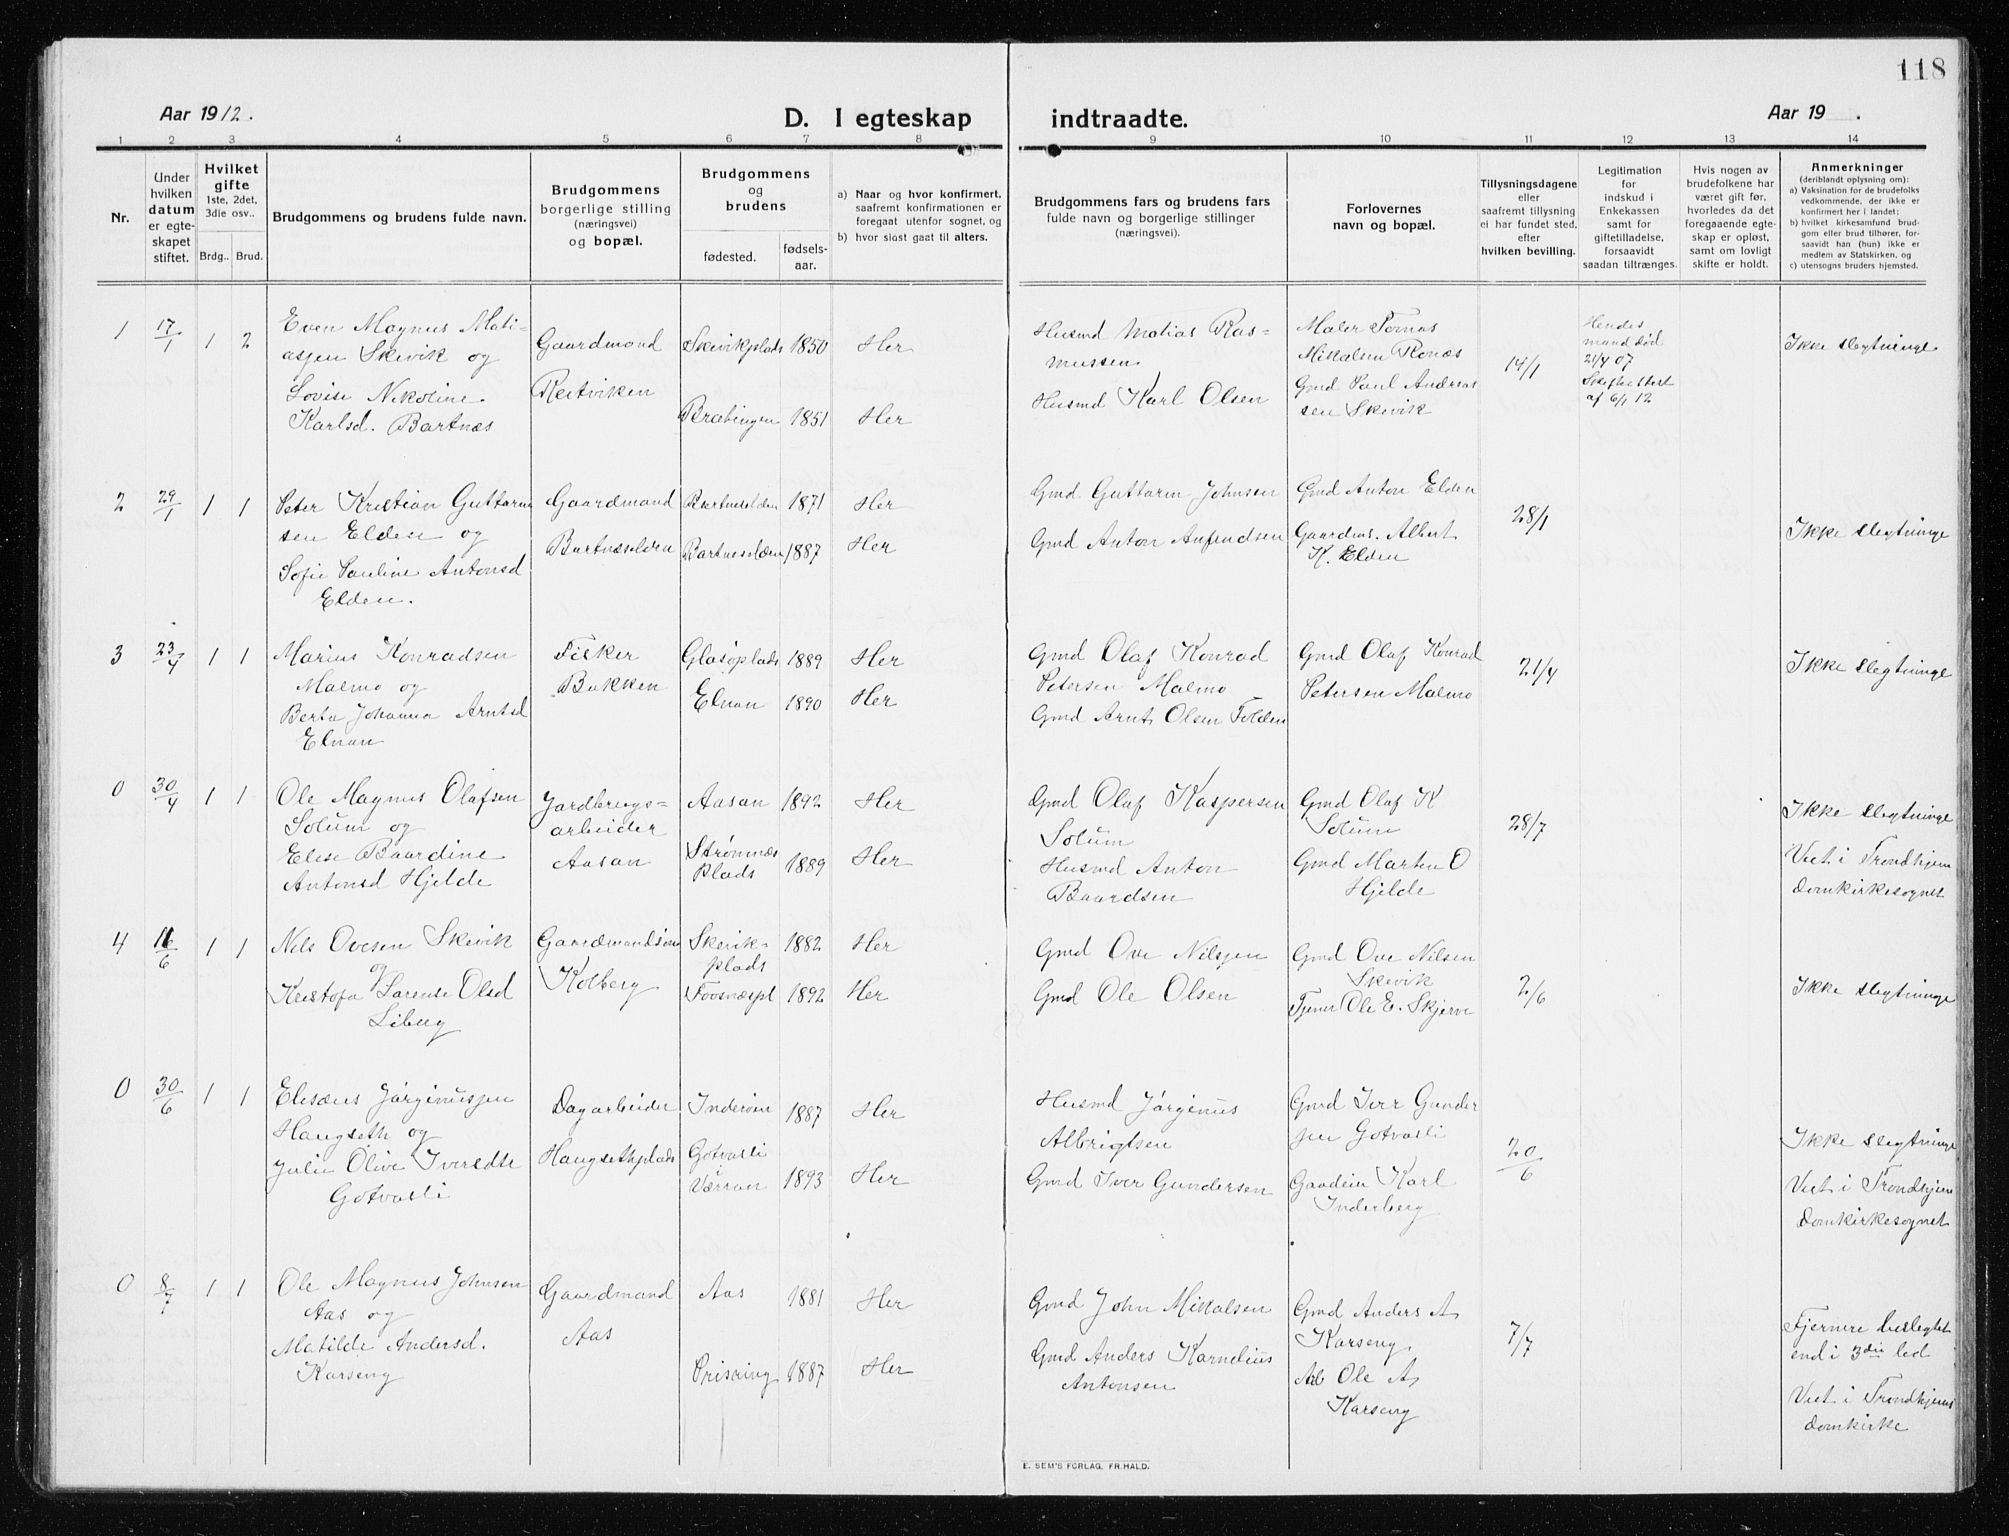 118
Aar 1912.
D. I egteskap indtraadte.
Aar 19 .
1 2 3 4 5 6 7 8 9 10 11 12 13 14
Nr.
Under
hvilken
datum
er egte-
skapet
stiftet.
Hvilket
gifte
1ste, 2det,
3die osv..
Brdg.. Brud.
Brudgommens og brudens fulde navn.
Brudgommens
borgerlige stilling
(næringsvei)
og bopæl.
Brudgommens
og
brudens
fødested.
fødsels-
aar.
a) Naar og hvor konfirmert,
saafremt konfirmationen er
foregaat utenfor sognet, og
b) hvor sidst gaat til alters.
Brudgommens fars og brudens fars
fulde navn og borgerlige stillinger
(næringsvei).
Forlovernes
navn og bopæl.
Tillysningsdagene
eller
saafremt tillysning
ei har fundet sted,
efter
hvilken bevilling.
Legitimation
for
indskud i
Enkekassen
samt for
giftetilladelse,
forsaavidt
saadan tiltrænges.
Hvis nogen av
brudefolkene har
været gift før,
hvorledes da det
foregaaende egte-
skap er opløst,
samt om lovligt
skifte er holdt.
Anmerkninger
(deriblandt oplysning om):
a) Vaksination for de brudefolks
vedkommende, der ikke er
konfirmert her i landet;
b) hvilket kirkesamfund brud-
gom eller brud tilhører, for-
saavidt han (hun) ikke er
medlem av Statskirken, og
c) utensogns bruders hjemsted.
1 17/1 1 2
Even Magnus Mati-
assen Skevik og
Lovise Nikoline
Karlsd. Bartnæs
Gaardmand
Reitviken
Skevikplads 1850 Her
Brabingen 1851 Her
Husmd Matias Ras-
mussen
Husmd Karl Olsen
Maler Tornas
Mikalsen Ronæs
Gmd Paul Andreas
sen Skevik
14/1
Hendes
mand død
21/4 07
af 6/1 12
Ikke slegtninge
2 29/1 1 1
Peter Kristian Guttorm
sen Elden og
Sofie Pauline Antonsd
Elden.
Gaardmand
Bartnæselden
Bartneselden 1871 Her
Bartneselden 1887 Her
Gmd Guttorm Johnsen
Gmd Anton Anfindsen
Gmd Anton Elden
Gaardms. Albert
K. Elden
28/1
Ikke slegtninge
3 23/4 1 1
Marius Konradsen
Malmo og
Berta Johanna Arntsd
Elnan
Fisker
Bakken
Glasöplads 1889 Her
Elnan 1890 Her
Gmd Olaf Konrad
Petersen Malmo
Gmd Arnt Olsen Folden
Gmd Olaf Konrad
Petersen Malmo
21/4
Ikke slegtninge
0 30/4 1 1
Ole Magnus Olafsen
Solum og
Elise Baardine
Antonsd Hjelde
Jordbrugs-
arbeider
Aasan
Aasan 1892 Her
Strømnæs
Plads 1889 Her
Gmd Olaf Kaspersen
Solum
Husmd Anton
Baardsen
Gmd Olaf K
Solum
Gmd Marten O
Hjelde
28/7
Ikke slegtninge
Viet i Trondhjem
domkirkesognet
4 16/6 1 1
Nils Ovesen Skevik
og
Kristofa Larense Olsd
Liberg
Gaardmandsøn
Kolberg
Skevik-
plads 1882 Her
Foosnæspl 1892 Her
Gmd Ove Nilssen
Gmd Ole Olsen
Gmd Ove Nilsen
Skevik
Tjener Ole E. Skjerve
2/6
Ikke slegtninge
0 30/6 1 1
Elisæus Jørginussen
Haugseth og
Julie Olive Iversdte
Gotvasli
Dagarbeider
Haugsethplads
Inderøen 1887 Her
Gotvasli
Værran 1893 Her
Husmd Jørginus
Albrigtsen
Gmd Iver Gundersen
Gmd Iver Gunder
sen Gotvasli
Gaardeier Karl
Inderberg
20/6
Ikke slegtninge
Viet i Trondhjem
domkirkesognet
0 8/7 1 1
Ole Magnus Johnsen
Aas og
Matilde Andersd.
Karseng
Gaardmand
Aas
Aas 1881 Her
Prisring 1887 Her
Gmd John Mikalsen
Gmd Anders Kornelius
Antonsen
Gmd Anders A
Karseng
Arb Ole A
Karseng
7/7
Fjernere beslegtet
end i 3die led
Viet i Trondhjems
domkirke
E. SEM'S FORLAG, FR.HALD.